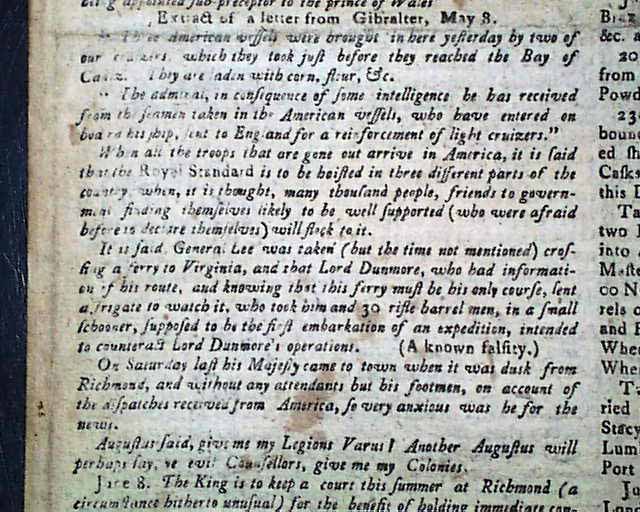 being appointed sub-preceptor to the prince of Wales
Extract of a letter from Gibralter, May 8.
" Three American veſſels were brought in here yeſterday by two of
our cruizers, which they took juſt before they reached the Bay of
Cadiz. They are laden with corn, flour, &c.
" The admiral, in conſequence of ſome intelligence he has received
from the ſeamen taken in the American veſſels, who have entered on
board his ſhip, ſent to England for a reinforcement of light cruizers."
When all the troops that are gone out arrive in America, it is ſaid
that the Royal Standard is to be hoiſted in three different parts of the
country, when, it is thought, many thouſand people, friends to govern-
ment finding themſelves likely to be well ſupported (who were afraid
before to declare themſelves) will flock to it.
It is ſaid General Lee was taken (but the time not mentioned) croſ-
ſing a ferry to Virginia, and that Lord Dunmore, who had informati-
on of his route, and knowing that this ferry muſt be his only courſe, ſent
a frigate to watch it, who took him and 30 rifle barrel men, in a ſmall
ſchooner, ſuppoſed to be the firſt embarkation of an expedition, intended
to counteract Lord Dunmore's operations. (A known falſity.)
On Saturday laſt his Majeſty came to town when it was dusk from
Richmond, and without any attendants but his footmen, on account of
the diſpatches received from America, ſo very anxious was he for the
news.
Auguſtus ſaid, give me my Legions Varus! Another Auguſtus will
perhaps ſay, ye evil Counſellors, give me my Colonies.
June 8. The King is to keep a court this ſummer at Richmond (a
circumſtance hitherto unuſual) for the benefit of holding immediate con-
&c. a
20
from
Powd
230
bound
ed ſh
Caſks
this
Ta
two
into
Maſte
00 N
rels o
and
Whe
Whe
ried
Stacy
Lum
Port